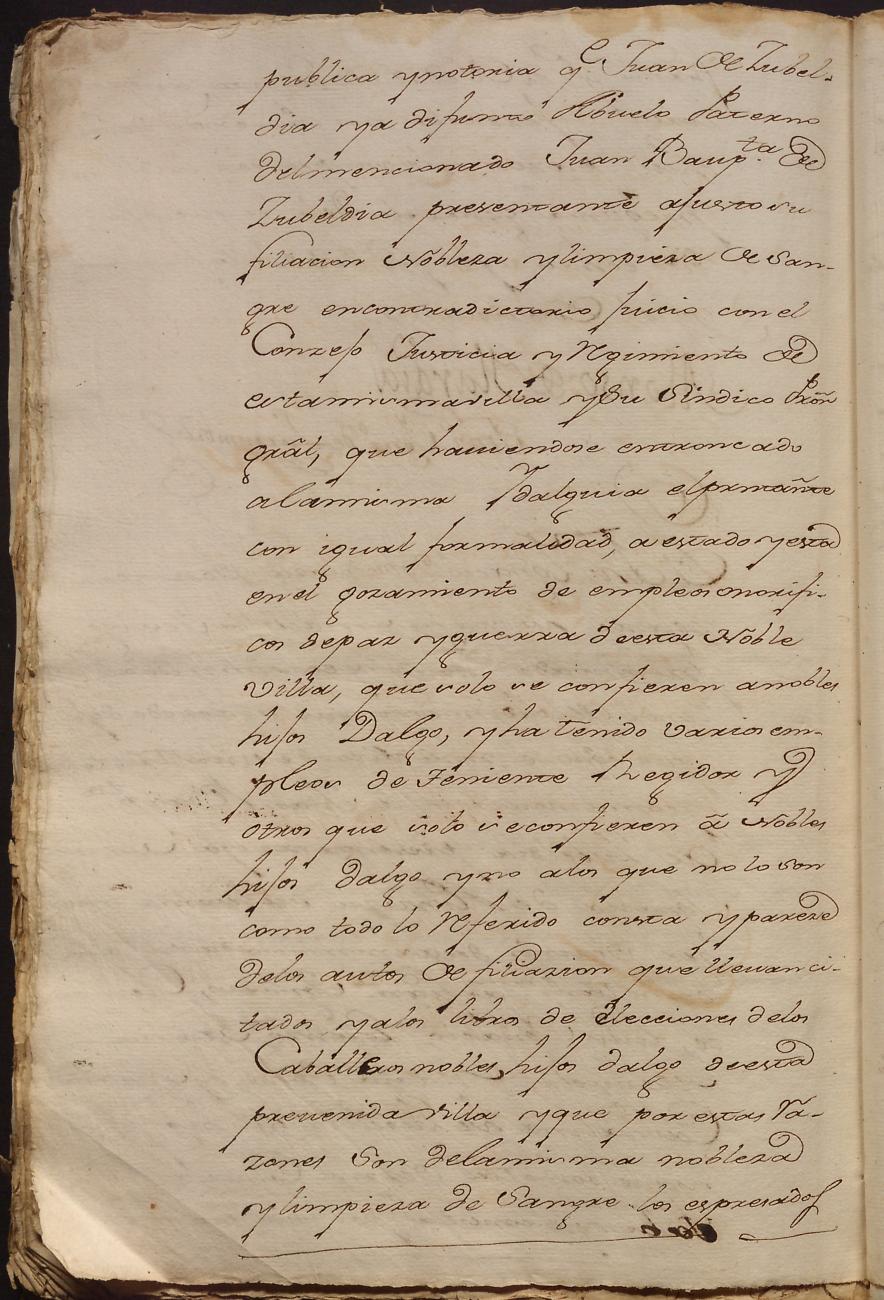 publica ynotoria q.e Juan de Zubel-
dia ya difunto Abuelo Paterno
delmencionado Juan Baup.ta de
Zubeldia presentante ajusto su
filiacion Nobleza ylimpieza de San-
gre encontradictorio juicio con el
Conzejo Justicia y Regimiento de
estamismavilla ySu Sindico Prõr
grãl, que haviendose entroncado
alamisma Ydalguia elprntãnte
con igual formalidad, a estado yesta
enel gozamiento de empleos onorifi-
cos depaz yguerra deesta Noble
villa, que solo se confieren anobles
hijos Dalgo, yha tenido varios em-
pleos de Teniente Regidor y
otros que solo seconfieren ã Nobles
hijos dalgo yno alos que no lo son
como todo lo Referido consta ypareze
delos autos de filiazion que llevan ci-
tados yalos libros de elecciones delos
Caballeros nobles hijos dalgo deesta
prevenida villa yque por estas Ra-
zones son delamisma nobleza
ylimpieza de Sangre los espresados